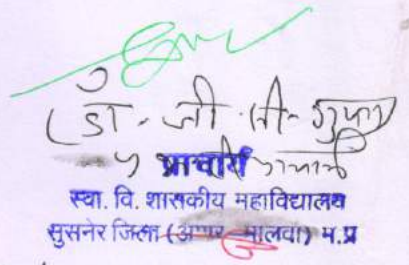 (डॉ. जी. पी. गुप्ता)
प्राचार्य
स्वा. वि. शासकीय महाविद्यालय
सुसनेर जिला (आगर मालवा) म.प्र